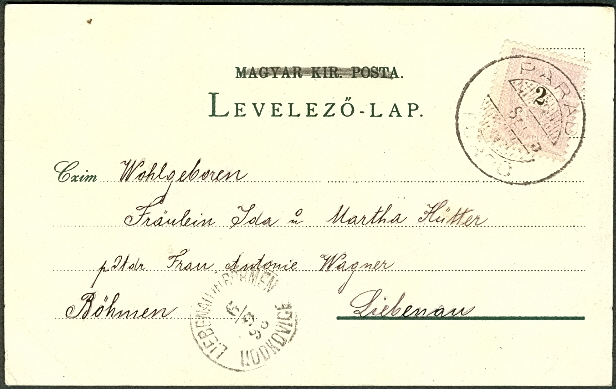 MAGYAR KIR. POSTA.
LEVELEZŐ-LAP.
PARÁD
2
Czim Wohlgeboren
Fräulein Ida u Martha Hütter
p. Adr. Frau Antonie Wagner
Böhmen Liebenau
LIEBENAU IN BÖHMEN
HODKOVICE